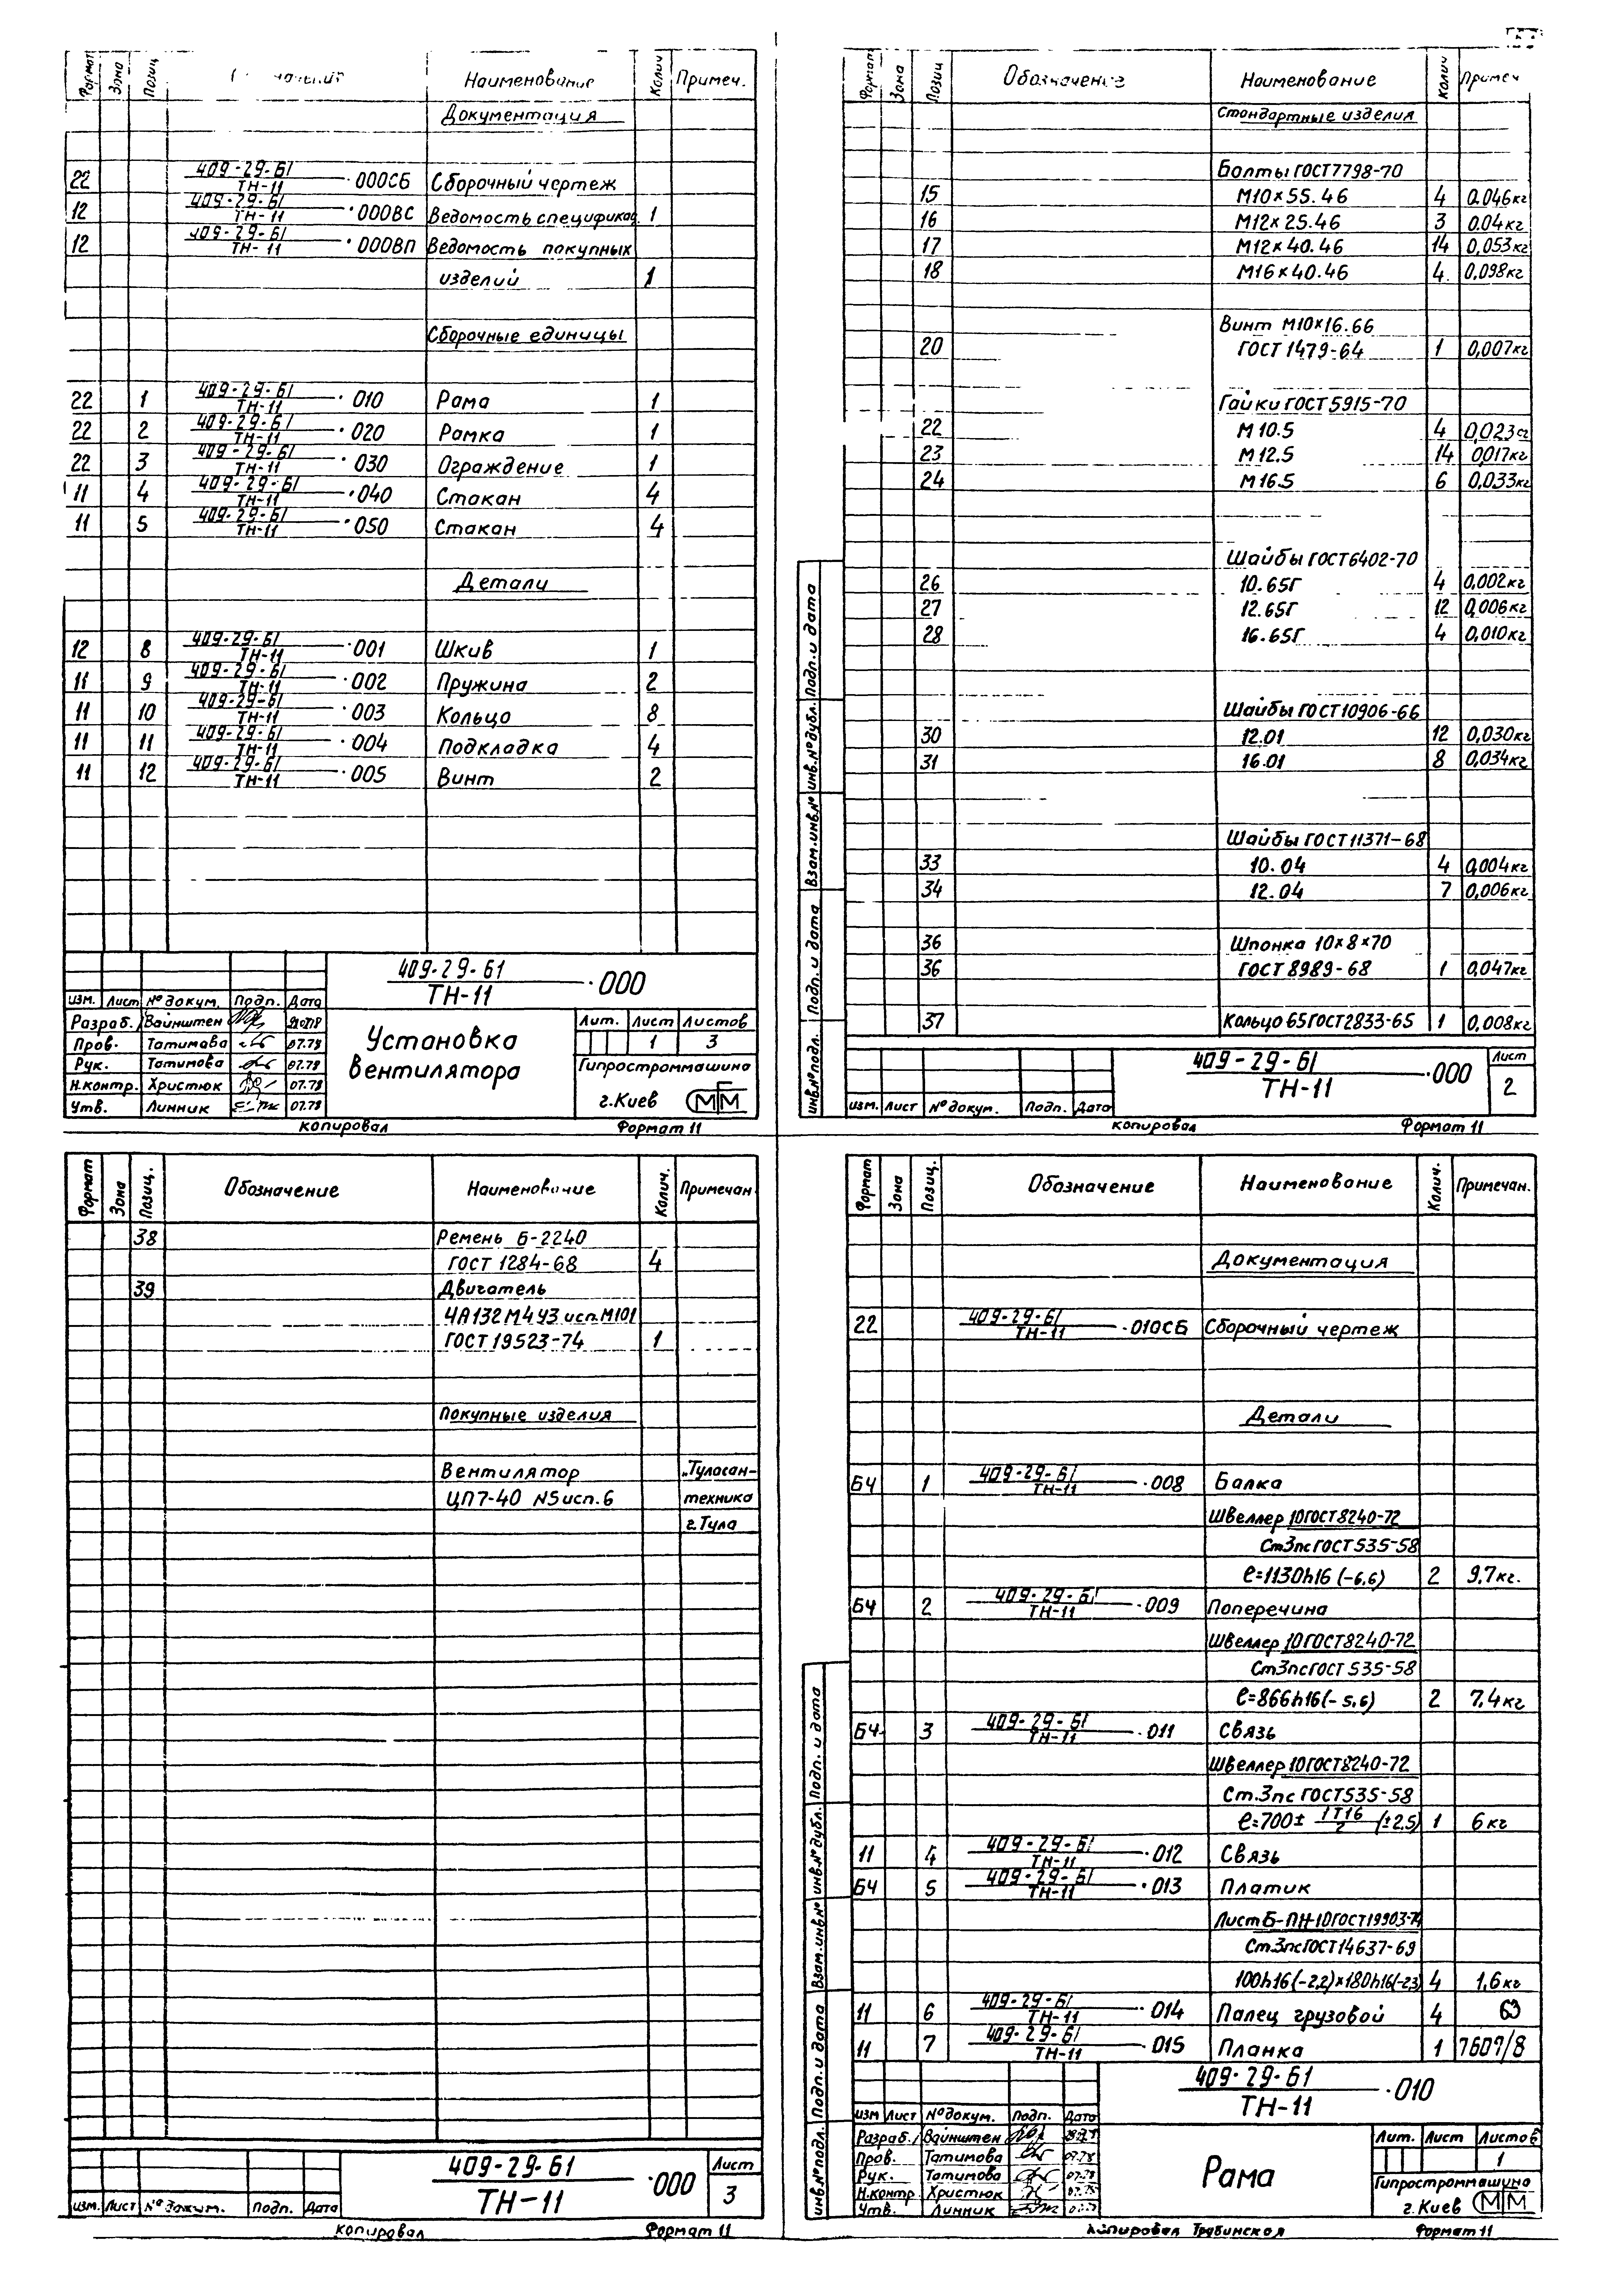 Формат Зона Позиц Наименование Колич Примеч.
Документация
22 409-29-61/ТН-11 ·000СБ Сборочный чертеж
12 409-29-61/ТН-11 ·000ВС Ведомость специфика 1
12 409-29-61/ТН-11 ·000ВП Ведомость покупных
изделий 1
Сборочные единицы
22 1 409-29-61/ТН-11 ·010 Рама 1
22 2 409-29-61/ТН-11 ·020 Рамка 1
22 3 409-29-61/ТН-11 ·030 Ограждение 1
11 4 409-29-61/ТН-11 ·040 Стакан 4
11 5 409-29-61/ТН-11 ·050 Стакан 4
Детали
12 8 409-29-61/ТН-11 ·001 Шкив 1
11 9 409-29-61/ТН-11 ·002 Пружина 2
11 10 409-29-61/ТН-11 ·003 Кольцо 8
11 11 409-29-61/ТН-11 ·004 Подкладка 4
11 12 409-29-61/ТН-11 ·005 Винт 2
409-29-61/ТН-11 ·000
Изм. Лист № докум. Подп. Дата
Разраб. Вайнштен
Пров. Татимова 07.78
Рук. Татимова 07.78
Н.контр. Христюк 07.78
Утв. Линник 07.78
Установка
вентилятора
Лит. Лист Листов
1 3
Гипростроммашина
г.Киев
Копировал Формат 11
Формат Зона Позиц Обозначение Наименование Колич Примеч
Стандартные изделия
Болты ГОСТ7798-70
15 М10×55.46 4 0.046кг
16 М12×25.46 3 0.04кг
17 М12×40.46 14 0,053кг
18 М16×40.46 4. 0,098кг
Винт М10×16.66
20 ГОСТ 1479-64 1 0,007кг
Гайки ГОСТ5915-70
22 М10.5 4 0,023
23 М12.5 14 0,017кг
24 М16.5 6 0,033кг
Шайбы ГОСТ6402-70
26 10.65Г 4 0,002кг
27 12.65Г 12 0,006кг
28 16.65Г 4 0,010кг
Шайбы ГОСТ10906-66
30 12.01 12 0,030кг
31 16.01 8 0,034кг
Шайбы ГОСТ11371-68
33 10.04 4 0,004кг
34 12.04 7 0,006кг
36 Шпонка 10×8×70
36 ГОСТ 8989-68 1 0,047кг
37 Кольцо 65ГОСТ2833-65 1 0,008кг
Инв.№подл. Подп. и дата Взам.инв.№ Инв.№дубл. Подп. и дата
409-29-61/ТН-11 ·000
Лист
2
Изм. Лист № докум. Подп. Дата
Копировал Формат 11
Формат Зона Позиц. Обозначение Наименование Колич. Примечан.
38 Ремень Б-2240
ГОСТ 1284-68 4
39 Двигатель
4А132М4У3 исп.М101
ГОСТ 19523-74 1
Покупные изделия
Вентилятор „Туласан-
ЦП7-40 N5 исп.6 техника
г.Тула
409-29-61/ТН-11 ·000
Лист
3
Изм. Лист № докум. Подп. Дата
Копировал Формат 11
Формат Зона Позиц. Обозначение Наименование Колич. Примечан.
Документация
22 409-29-61/ТН-11 ·010СБ Сборочный чертеж
Детали
БЧ 1 409-29-61/ТН-11 ·008 Балка
Швеллер 10ГОСТ8240-72
Ст3псГОСТ535-58
ℓ=1130h16(-6,6) 2 9.7кг.
БЧ 2 409-29-61/ТН-11 ·009 Поперечина
Швеллер 10ГОСТ8240-72
Ст3псГОСТ 535-58
ℓ=866h16(-5,6) 2 7.4кг
БЧ 3 409-29-61/ТН-11 ·011 Связь
Швеллер 10ГОСТ8240-72
Ст.3пс ГОСТ535-58
ℓ=700± IT16/2 (±2,5) 1 6кг
11 4 409-29-61/ТН-11 ·012 Связь
БЧ 5 409-29-61/ТН-11 ·013 Платик
Лист Б-ПН-10ГОСТ19903-74
Ст3псГОСТ14637-69
100h16(-2,2)×180h16(-2,5) 4 1,6кг
11 6 409-29-61/ТН-11 ·014 Палец грузовой 4 63
11 7 409-29-61/ТН-11 ·015 Планка 1 7607/8
Инв.№подл. Подп. и дата Взам.инв.№ Инв.№дубл. Подп. и дата
409-29-61/ТН-11 ·010
Изм Лист № докум. Подп. Дата
Разраб. Вайнштен
Пров. Татимова 07.78
Рук. Татимова 07.78
Н.контр Христюк
Утв. Линник
Рама
Лит. Лист Листов
1
Гипростроммашина
г.Киев
Копировал Трабинская Формат 11